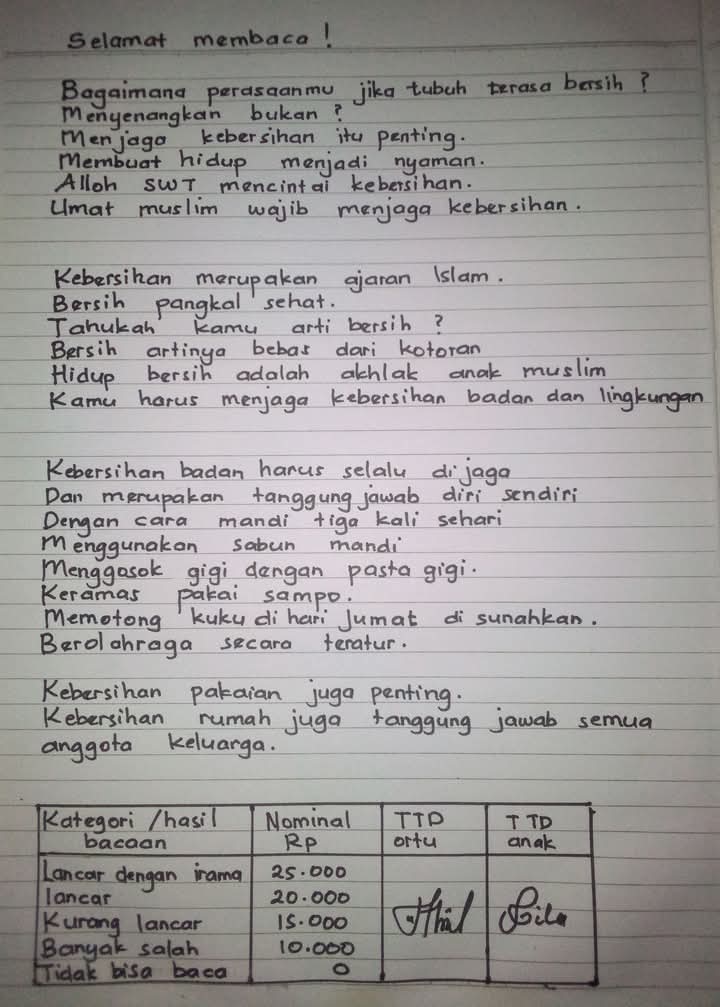 Selamat membaca !
Bagaimana perasaanmu jika tubuh terasa bersih ?
Menyenangkan bukan ?
Menjaga kebersihan itu penting.
Membuat hidup menjadi nyaman.
Alloh SWT mencintai kebersihan.
Umat muslim wajib menjaga kebersihan.
Kebersihan merupakan ajaran Islam.
Bersih pangkal sehat.
Tahukah kamu arti bersih ?
Bersih artinya bebas dari kotoran
Hidup bersih adalah akhlak anak muslim
Kamu harus menjaga kebersihan badan dan lingkungan
Kebersihan badan harus selalu di jaga
Dan merupakan tanggung jawab diri sendiri
Dengan cara mandi tiga kali sehari
Menggunakan sabun mandi
Menggosok gigi dengan pasta gigi.
Keramas pakai sampo.
Memotong kuku di hari Jumat di sunahkan.
Berolahraga secara teratur.
Kebersihan pakaian juga penting.
Kebersihan rumah juga tanggung jawab semua
anggota keluarga.
Kategori /hasil bacaan Nominal Rp TTD ortu TTD anak
Lancar dengan irama 25.000
lancar 20.000
Kurang lancar 15.000
Banyak salah 10.000
Tidak bisa baca 0